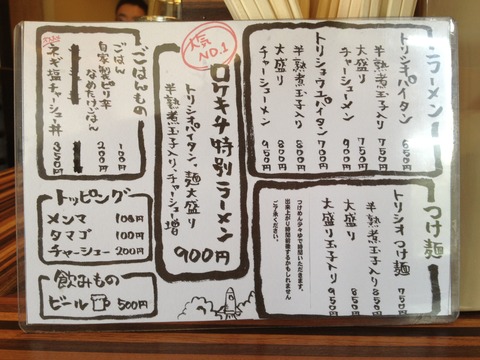 ラーメン
トリシオパイタン 650
半熟煮玉子入り 750
大盛り 750
チャーシューメン 950
トリショウユパイタン 700
半熟煮玉子入り 800
大盛り 800
チャーシューメン 950円
つけ麺
トリシオつけ麺 750
半熟煮玉子入り 850
大盛り 850
大盛り玉子入り 950
つけめん少々ゆで時間いただきます。
出来上がり時間前後するかもしれません
ご了承ください。
人気
NO.1
ロケキチ特別ラーメン
トリシオパイタン、麺大盛り
半熟煮玉子入り、チャーシュー増
900円
ごはんもの
ごはん 100円
自家製ピリ辛
なめたけごはん 200円
ネギ塩チャーシュー丼 350円
トッピング
メンマ 100円
タマゴ 100円
チャーシュー 200円
飲みもの
ビール 500円